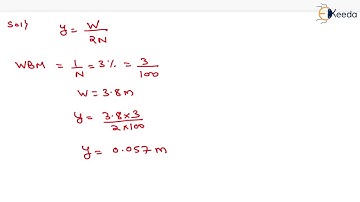 Ekeeda
Sol)
y = W / 2N
WBM = 1/N = 3% = 3/100
W = 3.8m
y = 3.8 x 3 / 2 x 100
y = 0.057 m